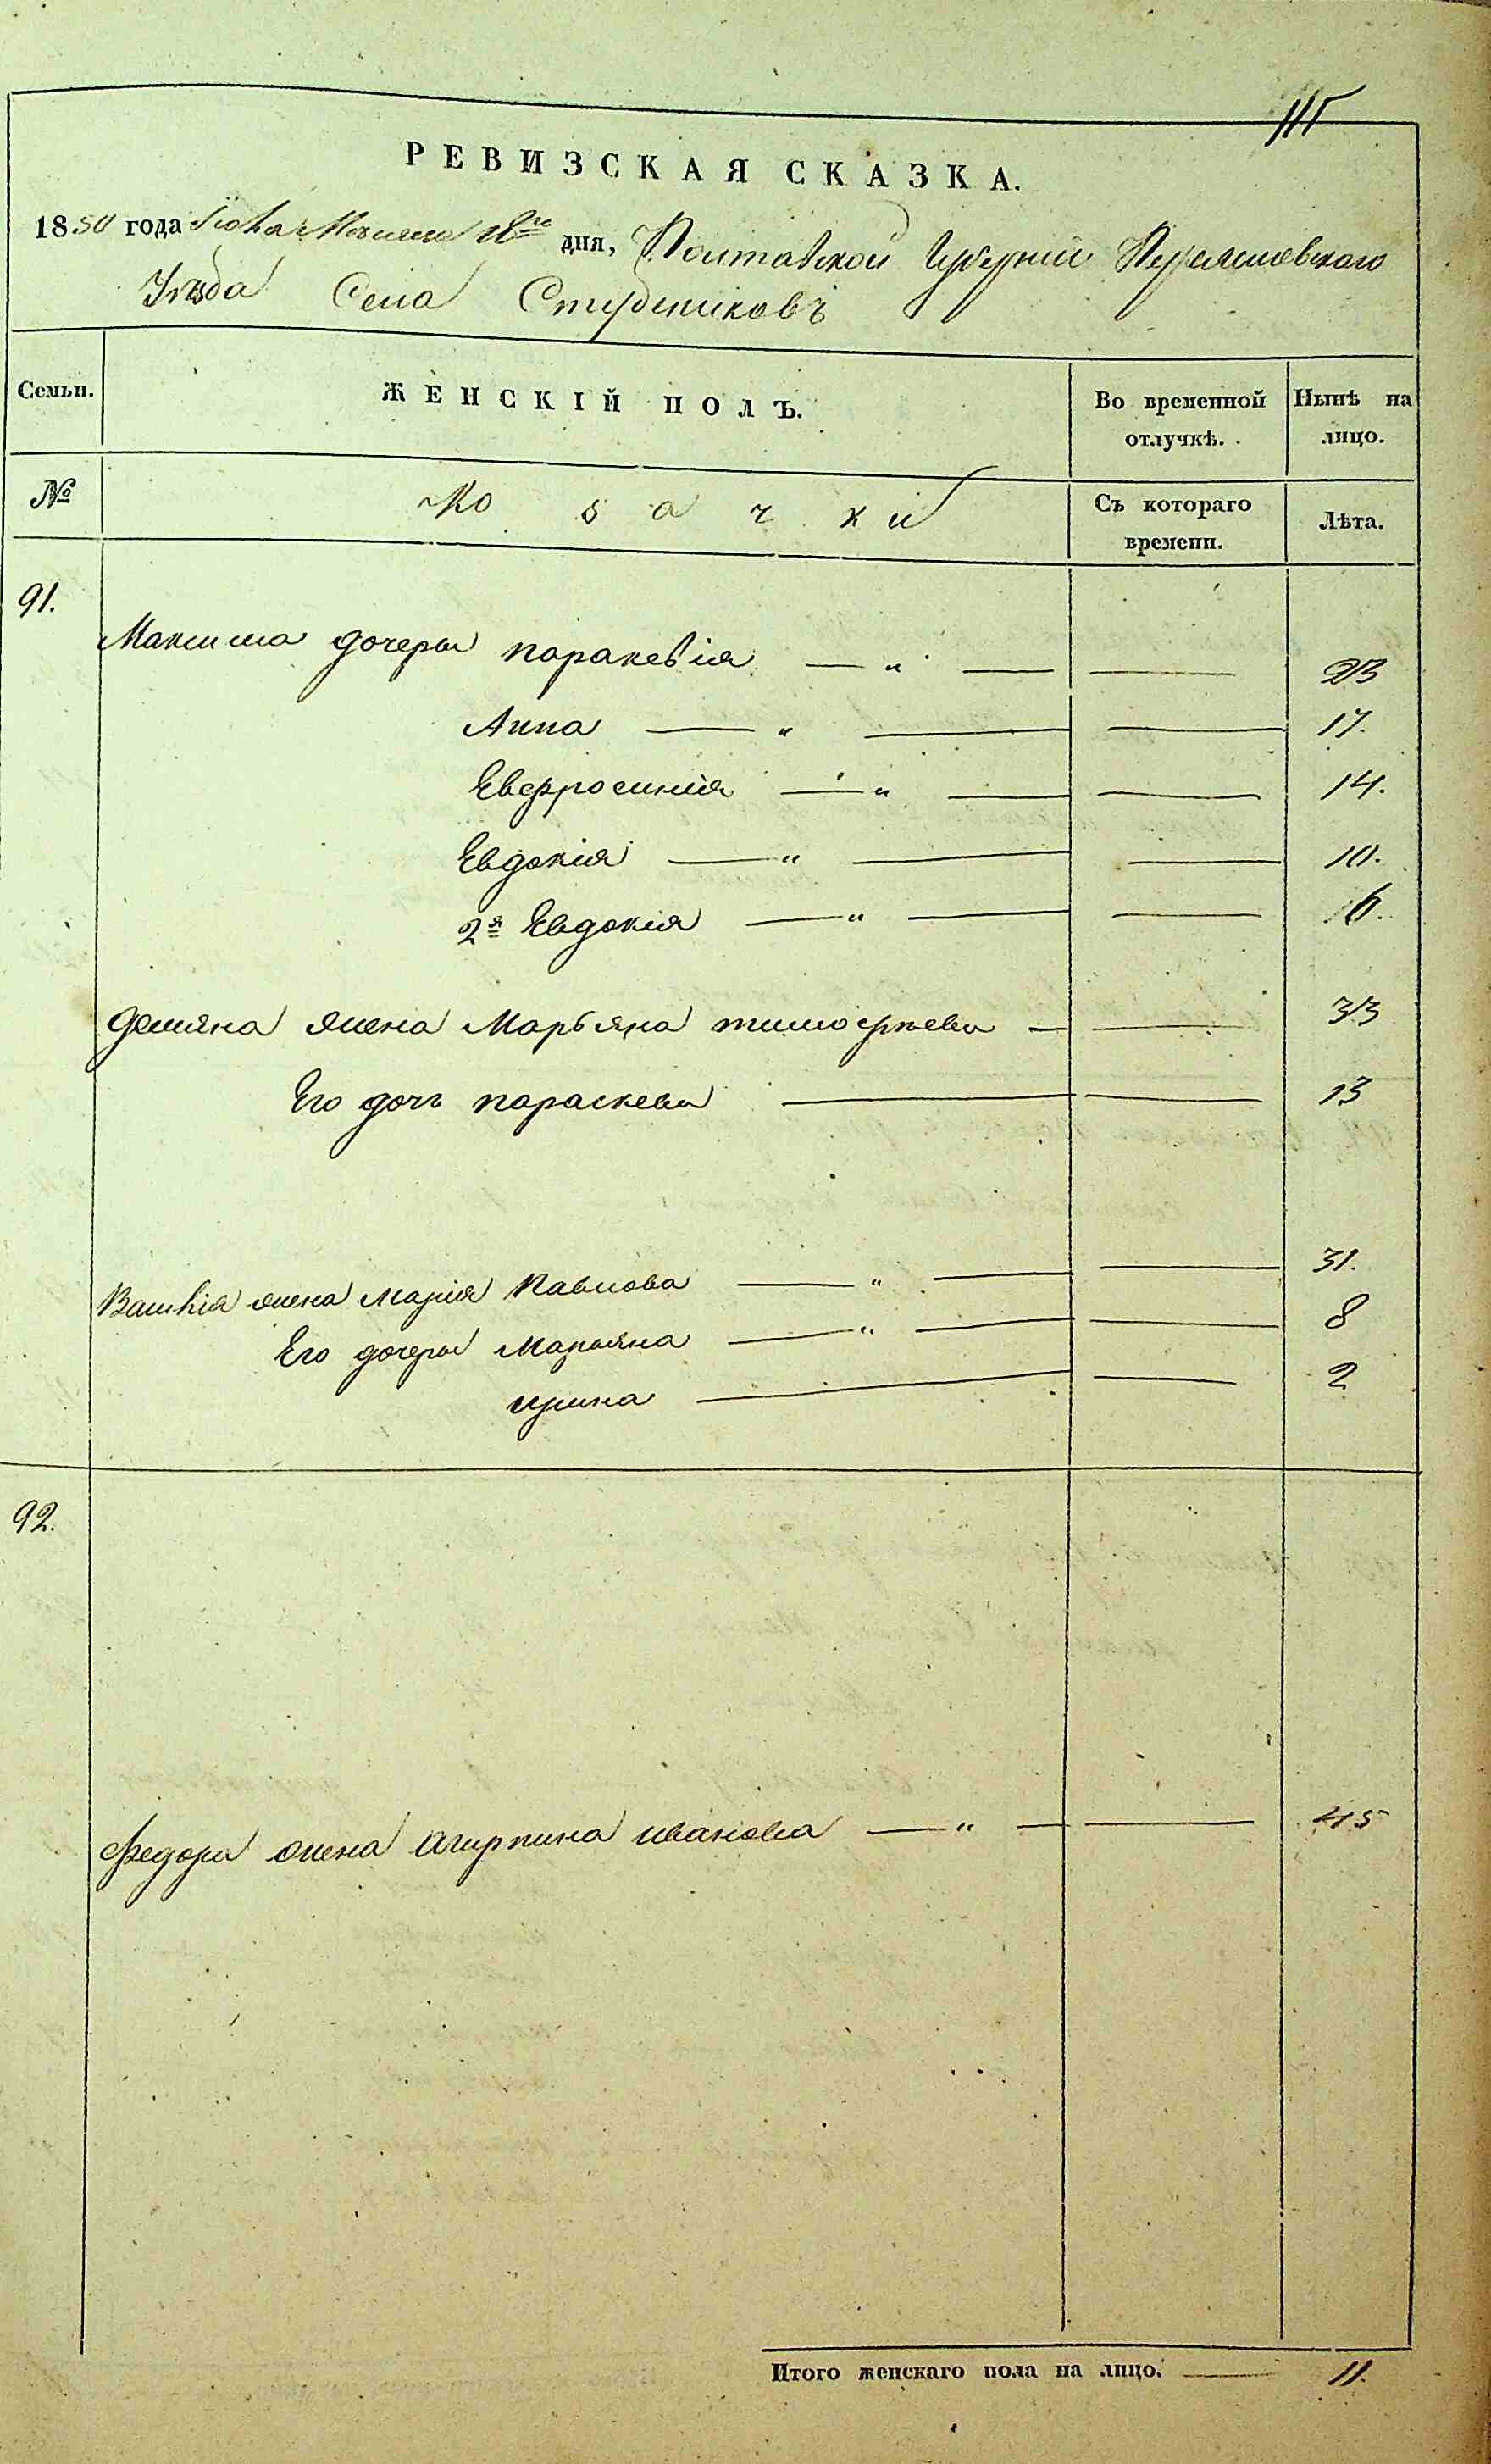 111
РЕВИЗСКАЯ СКАЗКА.
1850 года Месяца дня, Полтавской Губернии Переяславского
Уѣзда Села Студениковъ
Семьи. ЖЕНСКІЙ ПОЛЪ. Во временной отлучкѣ. Нынѣ на лицо.
№ Козачки Съ котораго времени. Лѣта.
91.
Максима дочеры Паракевія — " — — 23
Анна — " — — 17.
Евфросинія — " — — 14.
Евдокія — " — — 10.
2я Евдокія — " — — 6.
Демяна жена Марьяна тимофѣева — — 33
Его дочь параскева — — 13
Василія жена Марія Павлова — " — — 31.
Его дочеры Марьяна — " — — 8
ирина — — 2
92.
Федора жена Агирпина иванова — " — — 45
Итого женскаго пола на лицо. — 11.